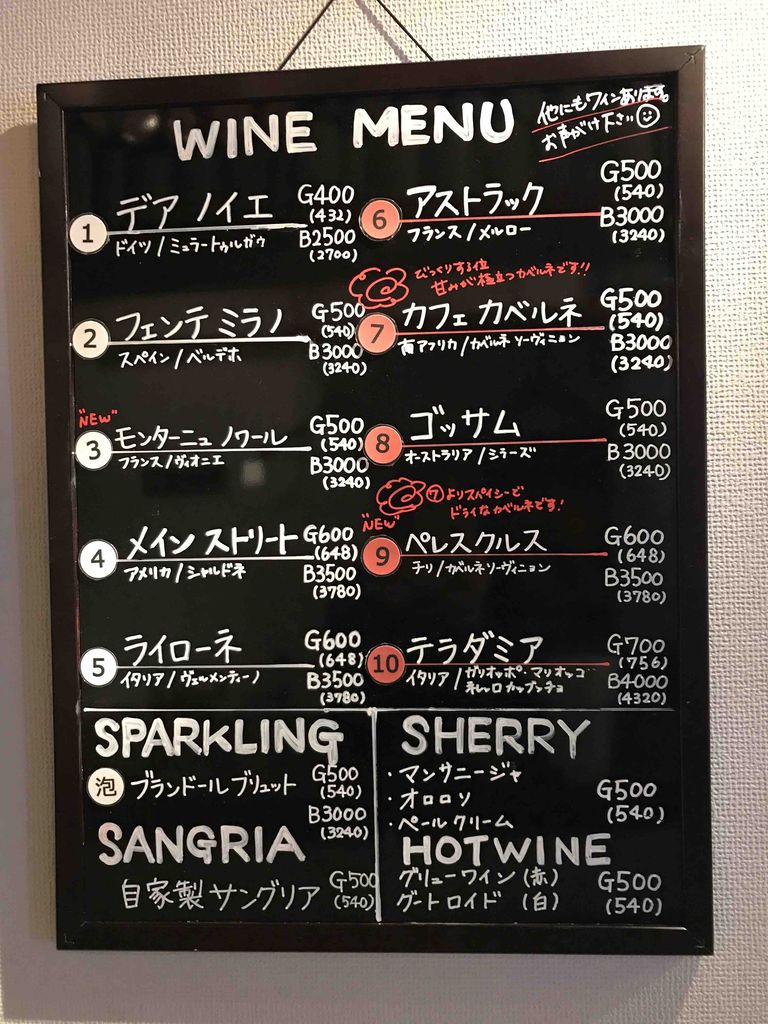 WINE MENU
他にもワインあります。
お声がけ下さい
1 デア ノイエ G400
(432)
ドイツ/ミュラートゥルガウ B2500
(2700)
2 フェンテ ミラノ G500
(540)
スペイン/ベルデホ B3000
(3240)
"NEW"
3 モンターニュ ノワール G500
(540)
フランス/ヴィオニエ B3000
(3240)
4 メイン ストリート G600
(648)
アメリカ/シャルドネ B3500
(3780)
5 ライローネ G600
(648)
イタリア/ヴェルメンティーノ B3500
(3780)
6 アストラック G500
(540)
フランス/メルロー B3000
(3240)
びっくりする位
甘みが極立つカベルネです!!
7 カフェ カベルネ G500
(540)
南アフリカ/カベルネ ソーヴィニョン B3000
(3240)
8 ゴッサム G500
(540)
オーストラリア/シラーズ B3000
(3240)
⑦よりスパイシーで
ドライなカベルネです!
"NEW"
9 ペレスクルス G600
(648)
チリ/カベルネソーヴィニョン B3500
(3780)
10 テラダミア G700
(756)
イタリア/ガリオッポ・マリオッコ
ネレッロカップッチョ B4000
(4320)
SPARKLING
泡 ブランドール ブリュット G500
(540)
B3000
(3240)
SANGRIA
自家製 サングリア G500
(540)
SHERRY
・マンサニージャ
・オロロソ G500
・ペールクリーム (540)
HOTWINE
グリューワイン (赤) G500
グートロイド (白) (540)